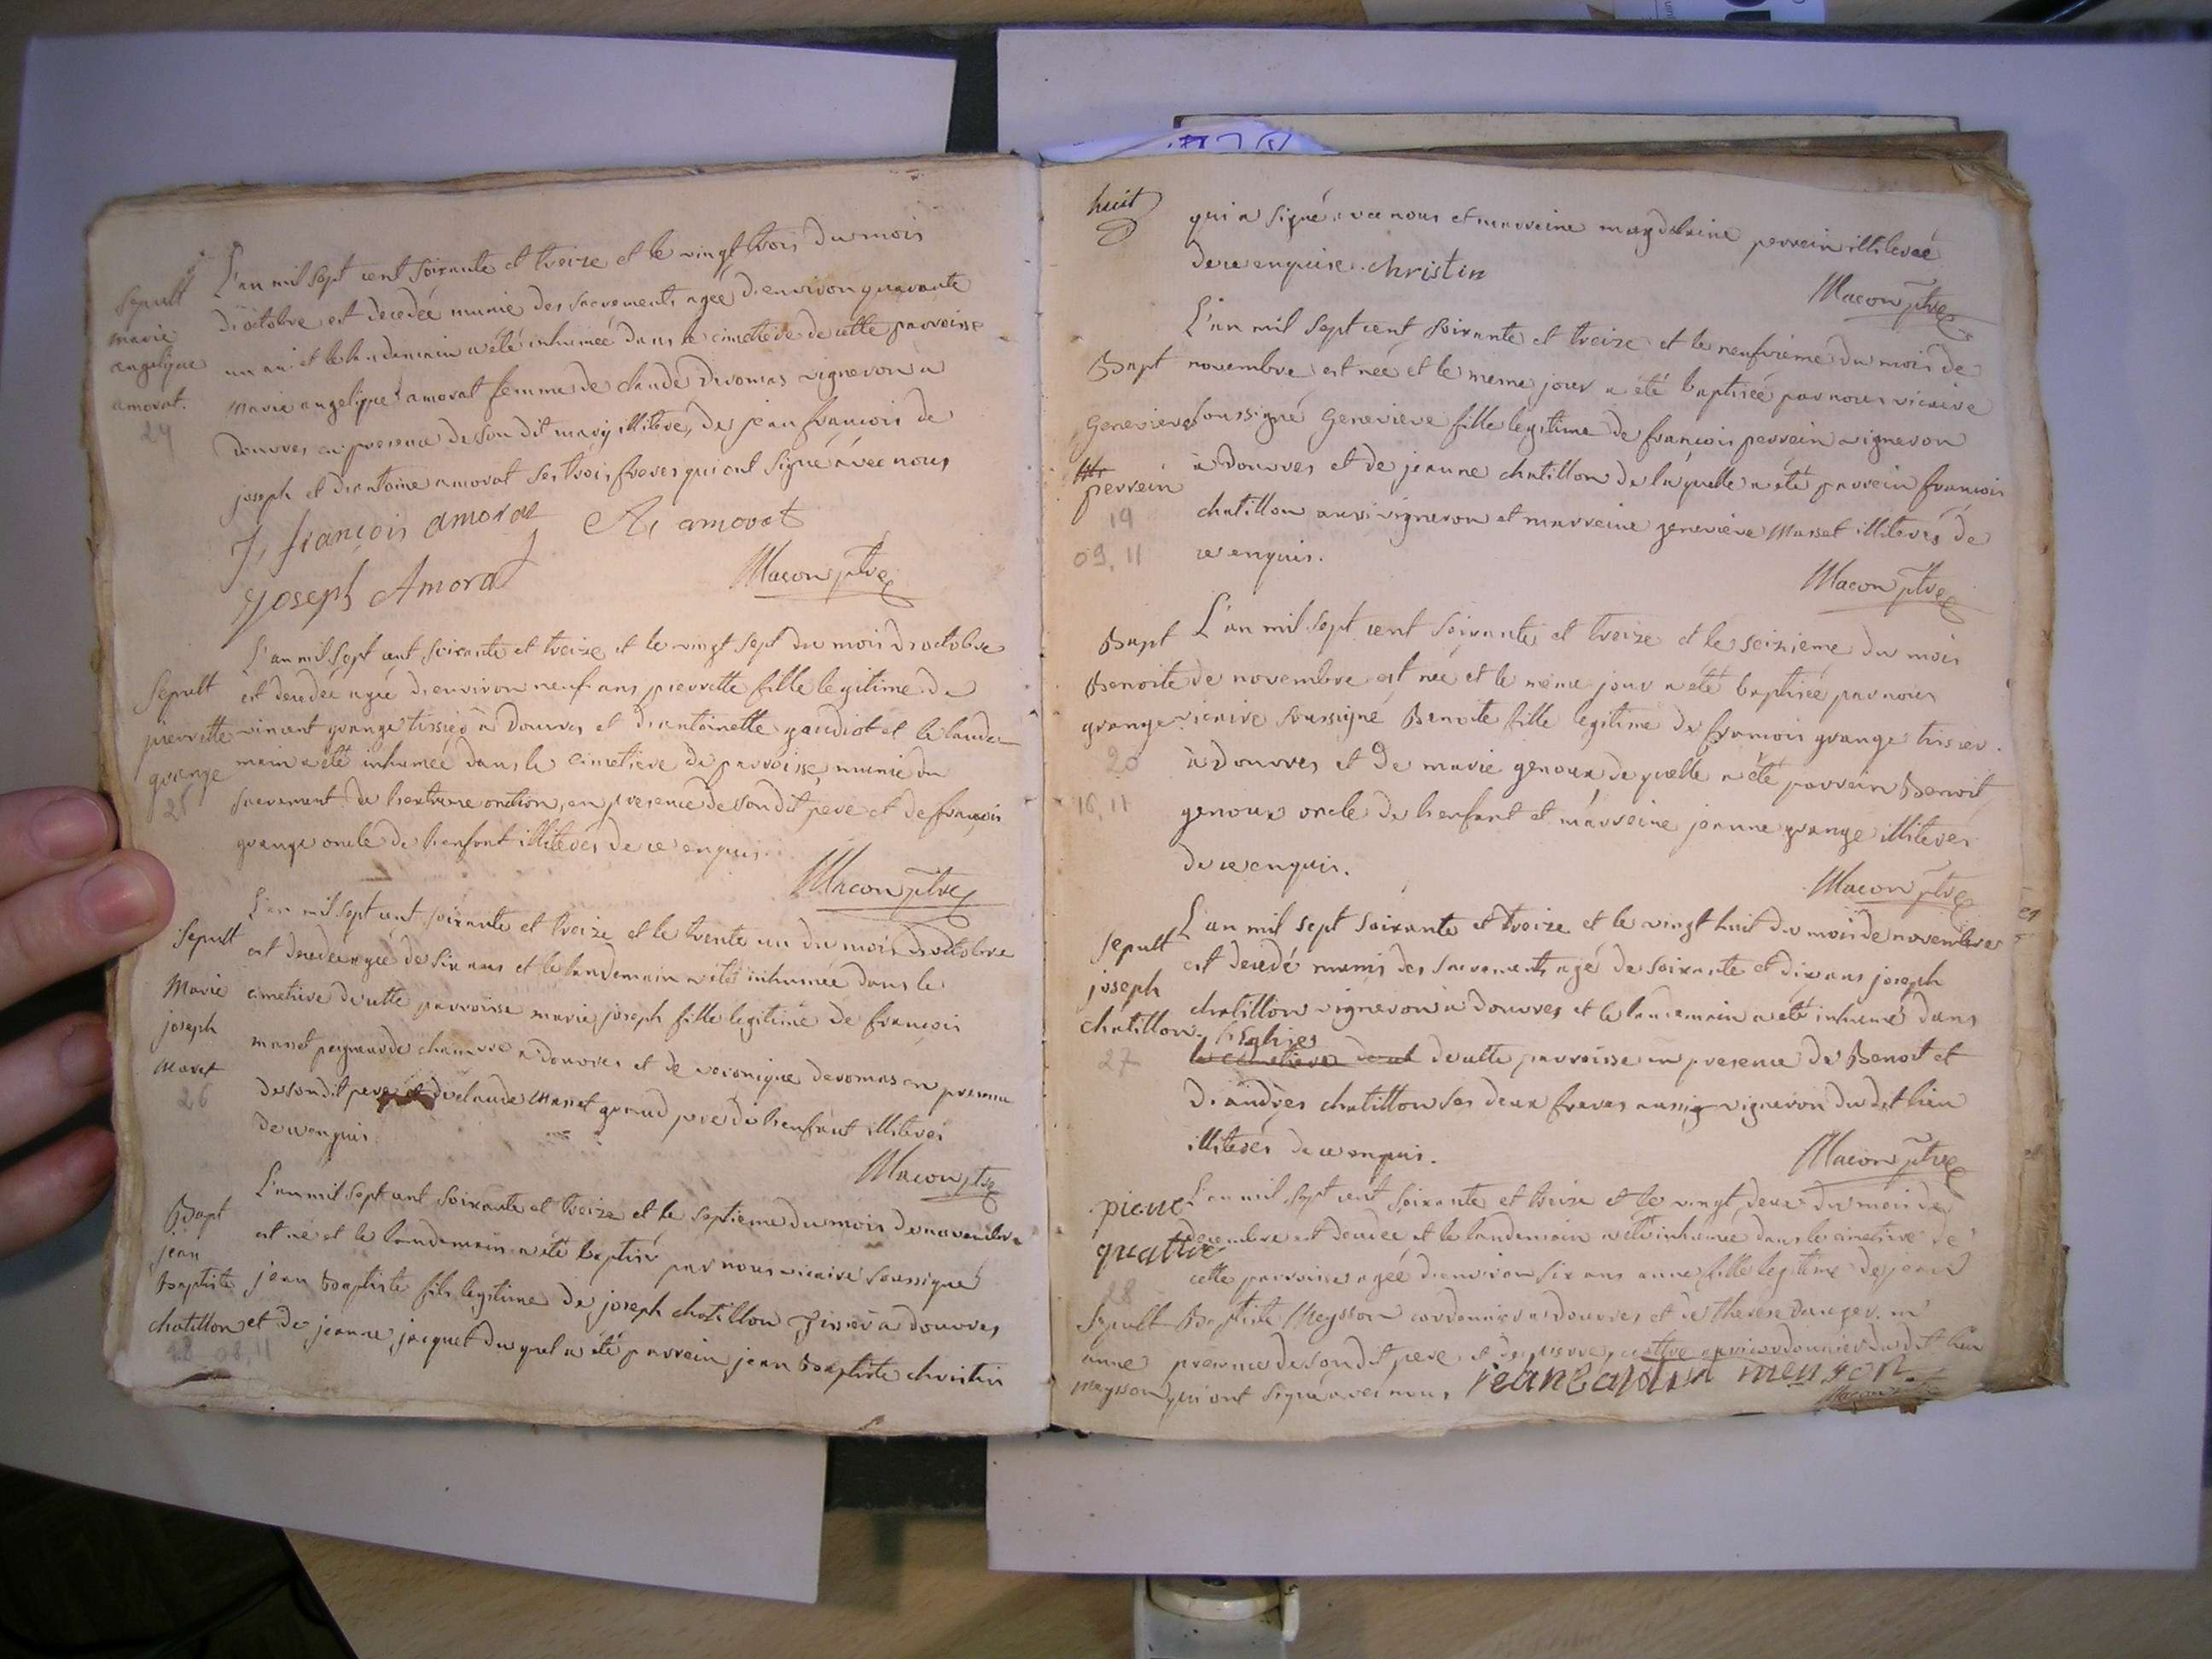 Sepult
marie
angelique
amorat.
24
L'an mil sept cent soixante et treize et le vingt trois du mois
d'octobre est decedée munie des sacrements agée d'environ quarante
un an et le landemain a été inhumée dans le cimetiere de cette parroisse
marie angelique amorat femme de claude devomas vigneron a
douvres en presence de son dit mary illiteré, de jean françois de
joseph et d'antoine amorat ses trois freres qui ont signé avec nous
J, françois amorat At amorat
Joseph Amorat Macon ptre
Sepult
pierrette
grange
25
L'an mil sept cent soixante et treize et le vingt sept du mois d'octobre
est decedée agée d'environ neuf ans pierrette fille legitime de
vincent grange tissier à douvres et d'antoinette gaudiot et le lande
main a été inhumée dans le cimetiere de parroisse, munie du
sacrement de l'extreme onction, en presence de son dit pere et de françois
grange oncle de l'enfant illiterés de ce enquis.
Macon ptre
Sepult
Marie
joseph
Maret
26
L'an mil sept cent soixante et treize et le trente un du mois d'octobre
est decedée agée de six ans et le landemain a été inhumée dans le
cimetiere de cette parroisse marie joseph fille legitime de françois
masset peigneur de chanvre a douvres et de veronique devomas en presence
de son dit pere et de claude Masset grand pere de l'enfant illiterés
de ce enquis.
Macon ptre
Bapt
jean
Baptiste
chatillon
18 08,11
L'an mil sept cent soixante et treize et le septieme du mois de novembre
est né et le landemain a été baptisé par nous vicaire soussigné
jean baptiste fils legitime de joseph chatillon tissier à douvres
et de jeanne jacquet du quel a été parrein jean baptiste christin
huit
qui a signé avec nous et marreine magdelaine perrein illiterée
de ce enquise. christin
Macon ptre
Bapt
Genevieve
perrein
19
09,11
L'an mil sept cent soixante et treize et le neufvieme du mois de
novembre est née et le meme jour a été baptisée par nous vicaire
soussigné Genevieve fille legitime de françois perrein vigneron
à douvres et de jeanne chatillon de laquelle a été parrein françois
chatillon aussi vigneron et marreine genevieve Masset illiterés de
ce enquis.
Macon ptre
Bapt
Benoite
grange
20
16,11
L'an mil sept cent soixante et treize et le seizieme du mois
de novembre est née et le même jour a été baptisée par nous
vicaire soussigné Benoite fille legitime de françois grange tissier
à douvres et de marie genoux, de quelle a été parrein Benoit
genoux oncle de l'enfant et marreine jeanne grange illiterés
de ce enquis.
Macon ptre
Sepult
joseph
chatillon
27
L'an mil sept soixante et treize et le vingt huit du mois de novembre
est decedé munis des sacrements agé de soixante et dix ans joseph
chatillon vigneron à douvres et le landemain a été inhumé dans
l'Eglise
le cimetiere de cet de cette parroisse en presence de Benoit et
d'andrès chatillon ses deux freres aussi vigneron du dit lieu
illiterés de ce enquis.
Macon ptre
pierre
quattre
28
Sepult
anne
meysson
L'an mil sept cent soixante et treize et le vingt deux du mois de
decembre est decedée et le landemain a été inhumée dans le cimetiere de
cette parroisse agée d'environ six ans anne fille legitime de jean
Baptiste Meysson cordonnier a douvres et de therese en
presence de son dit pere et de pierre quattre cordonnier du dit lieu
qui ont signé avec nous, jean batista meyson
Macon ptre